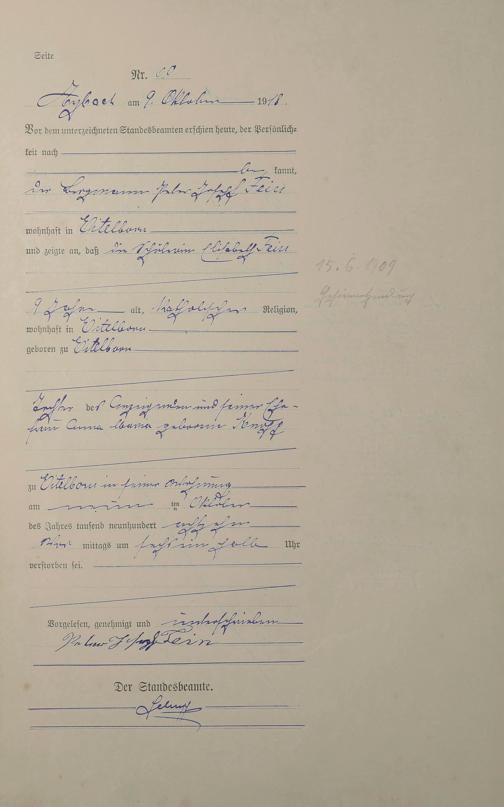 Seite
Nr. 60
Arzbach am 9. Oktober 1918.
Vor dem unterzeichneten Standesbeamten erschien heute, der Persönlich-
keit nach
be kannt,
der Bergmann Peter Josef Fein
wohnhaft in Eitelborn
und zeigte an, daß die Schülerin Elisabeth Fein
9 Jahre alt, katholischer Religion,
wohnhaft in Eitelborn
geboren zu Eitelborn
Tochter des Anzeigenden und seiner Ehe-
frau Anna Maria geborene
zu Eitelborn in seiner Wohnung
am neun ten Oktober
des Jahres tausend neunhundert achtzehn
Vor mittags um sechs ein halb Uhr
verstorben sei.
Vorgelesen, genehmigt und unterschrieben
Peter Josef Fein
Der Standesbeamte.
15.6.1909
Gehirnentzündung